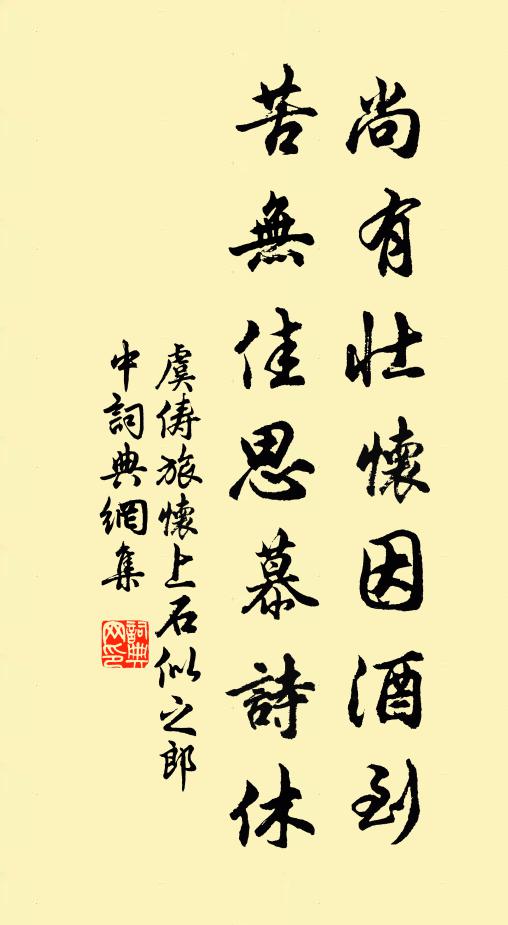 尚有壯懷因酒到
苦無佳思慕詩休
虞儔旅懷上石似之郎
中詞典網集
詞典
网印